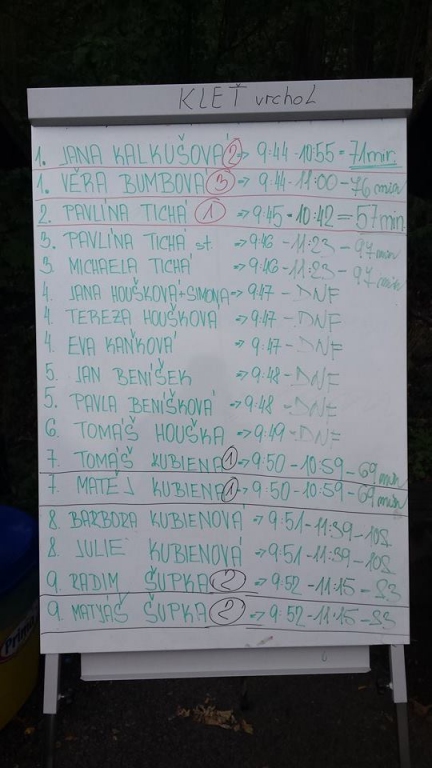 KLEŤ vrchol
1. JANA KALKUŠOVÁ 2 → 9:44-10:55 = 71min
1. VĚRA BUMBOVÁ 3 → 9:44-11:00 - 76min
2. PAVLÍNA TICHÁ 1 → 9:45-10:42 = 57min
3. PAVLÍNA TICHÁ st. → 9:46 - 11:23 - 97min
3. MICHAELA TICHÁ → 9:46-11:23 - 97min
4. JANA HOUŠKOVÁ+SIMONA → 9:47 - DNF
4. TEREZA HOUŠKOVÁ → 9:47 - DNF
4. EVA KAŇKOVÁ → 9:47 - DNF
5. JAN BENÍŠEK → 9:48 - DNF
5. PAVLA BENÍŠKOVÁ → 9:48 - DNF
6. TOMÁŠ HOUŠKA → 9:49 - DNF
7. TOMÁŠ KUBIENA 1 → 9:50 - 10:59 - 69min
7. MATĚJ KUBIENA 1 → 9:50 - 10:59 - 69min
8. BARBORA KUBIENOVÁ → 9:51 - 11:39 - 108
8. JULIE KUBIENOVÁ → 9:51 - 11:39 - 108
9. RADIM ŠUPKA 2 → 9:52 - 11:15 - 83
9. MATYÁŠ ŠUPKA 2 → 9:52 - 11:15 - 83